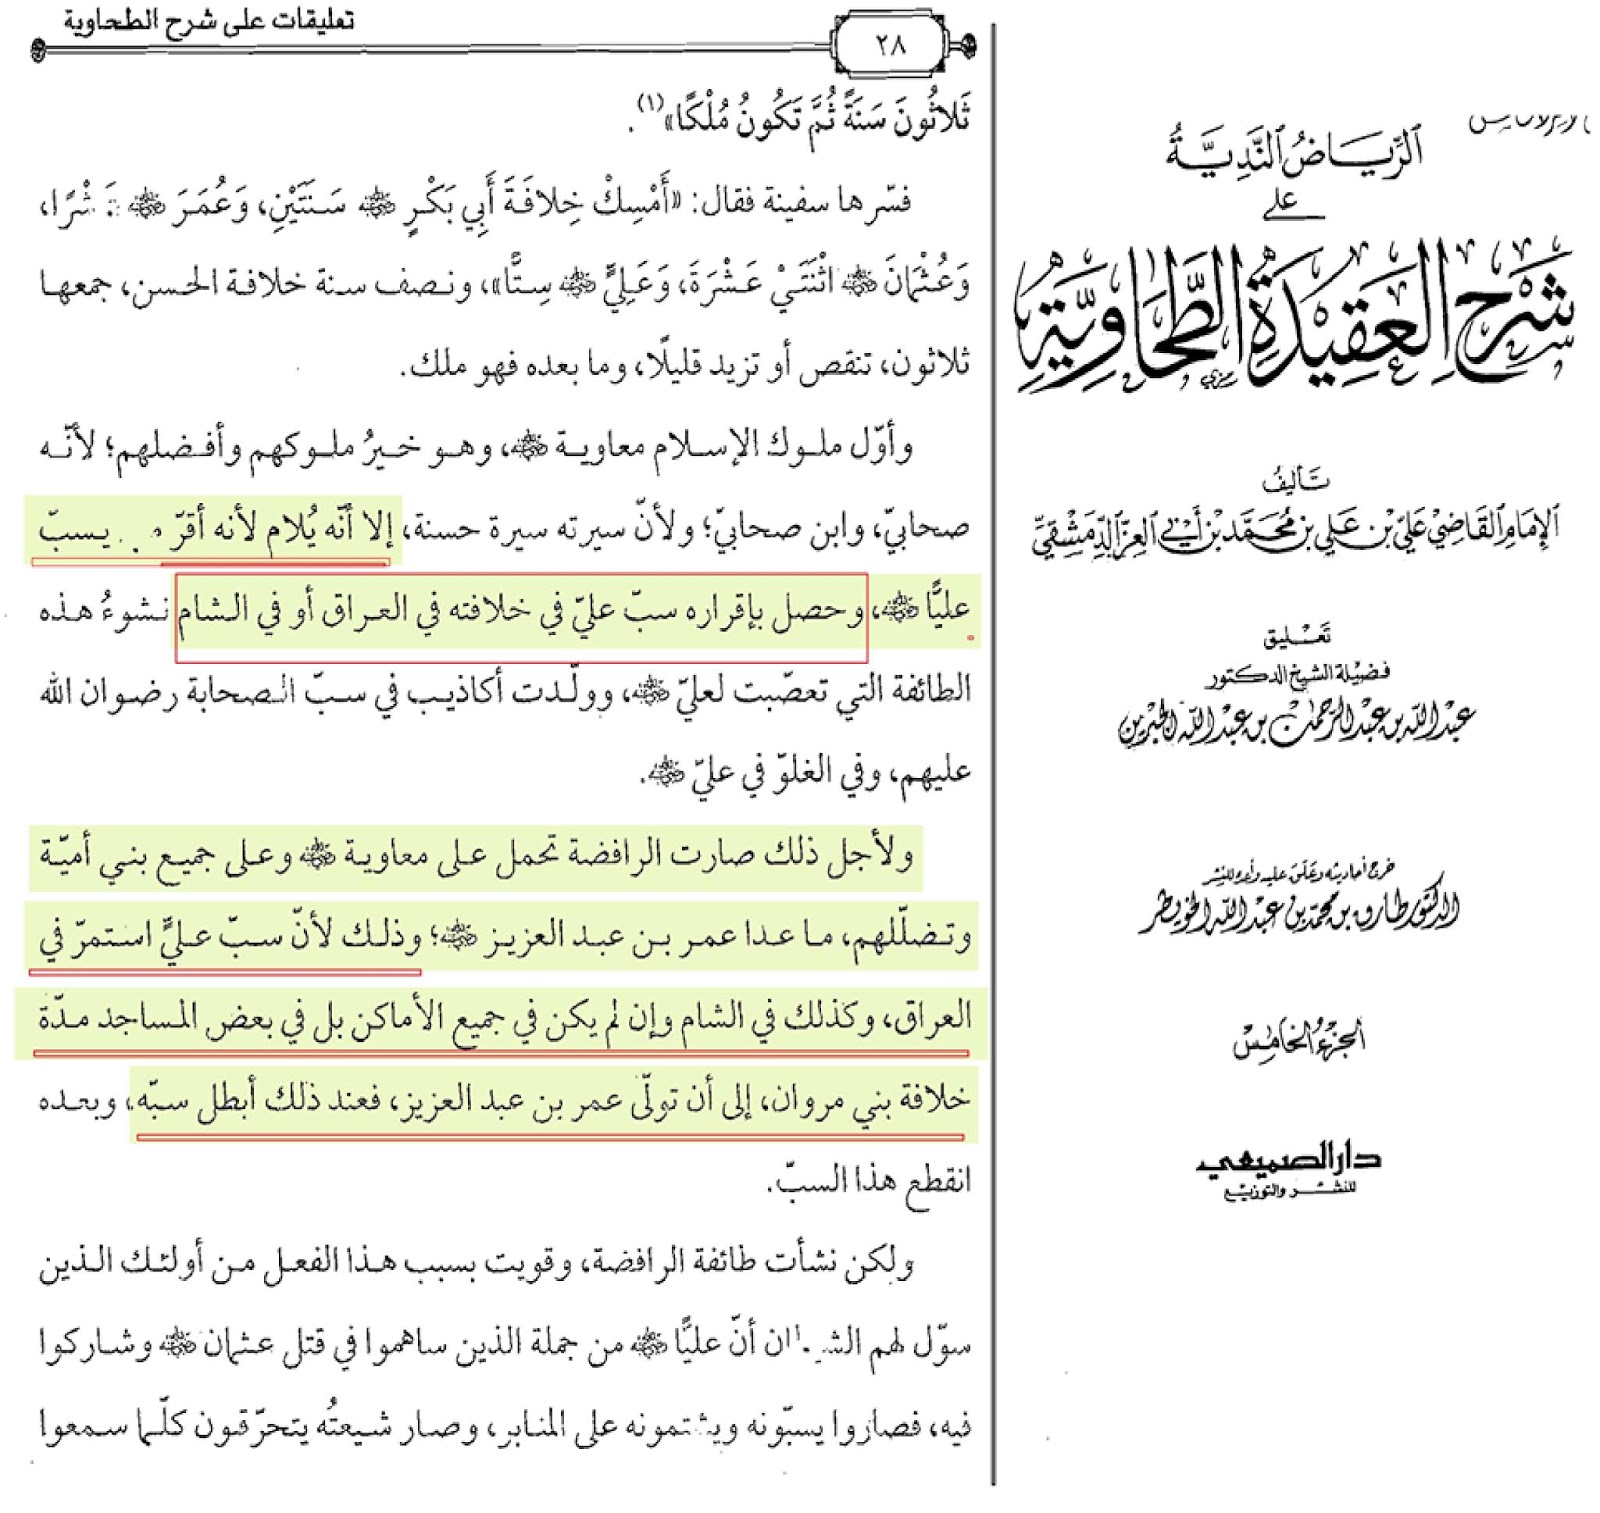 الرياض الندية
على
شرح العقيدة الطحاوية
تأليف
الإمام القاضي علي بن علي بن محمد بن أبي العز الدمشقي
تعليق
فضيلة الشيخ الدكتور
عبد الله بن عبد الرحمن بن عبد الله الجبرين
خرج أحاديثه وعلق عليه وأعده للنشر
الدكتور طارق بن محمد بن عبد الله الخويطر
الجزء الخامس
دار الصميعي
للنشر والتوزيع
٢٨
تعليقات على شرح الطحاوية
ثَلاثُونَ سَنَةً ثُمَّ تَكُونُ مُلْكًا»(١).
فسّرها سفينة فقال: «أَمْسِكْ خِلافَةَ أَبِي بَكْرٍ رضي الله عنه سَنَتَيْنِ، وَعُمَرَ رضي الله عنه عَشْرًا،
وَعُثْمَانَ رضي الله عنه اثْنَتَيْ عَشْرَةَ، وَعَلِيٍّ رضي الله عنه سِتًّا»، ونصف سنة خلافة الحسن، جمعها
ثلاثون، تنقص أو تزيد قليلًا، وما بعده فهو ملك.
وأوّل ملوك الإسلام معاوية رضي الله عنه، وهو خيرُ ملوكهم وأفضلهم؛ لأنّه
صحابيّ، وابن صحابيّ؛ ولأنّ سيرته سيرة حسنة، إلا أنّه يُلام لأنه أقرّ يسبّ
عليًّا رضي الله عنه، وحصل بإقراره سبّ عليّ في خلافته في العراق أو في الشام نشوءُ هذه
الطائفة التي تعصّبت لعليّ رضي الله عنه، وولّدت أكاذيب في سبّ الصحابة رضوان الله
عليهم، وفي الغلوّ في عليّ رضي الله عنه.
ولأجل ذلك صارت الرافضة تحمل على معاوية رضي الله عنه وعلى جميع بني أميّة
وتضلّلهم، ما عدا عمر بن عبد العزيز رضي الله عنه؛ وذلك لأنّ سبّ عليٍّ استمرّ في
العراق، وكذلك في الشام وإن لم يكن في جميع الأماكن بل في بعض المساجد مدّة
خلافة بني مروان، إلى أن تولّى عمر بن عبد العزيز، فعند ذلك أبطل سبّه، وبعده
انقطع هذا السبّ.
ولكن نشأت طائفة الرافضة، وقويت بسبب هذا الفعل من أولئك الذين
سوّل لهم الشيطان أنّ عليًّا رضي الله عنه من جملة الذين ساهموا في قتل عثمان رضي الله عنه وشاركوا
فيه، فصاروا يسبّونه ويشتمونه على المنابر، وصار شيعتُه يتحرّقون كلّما سمعوا